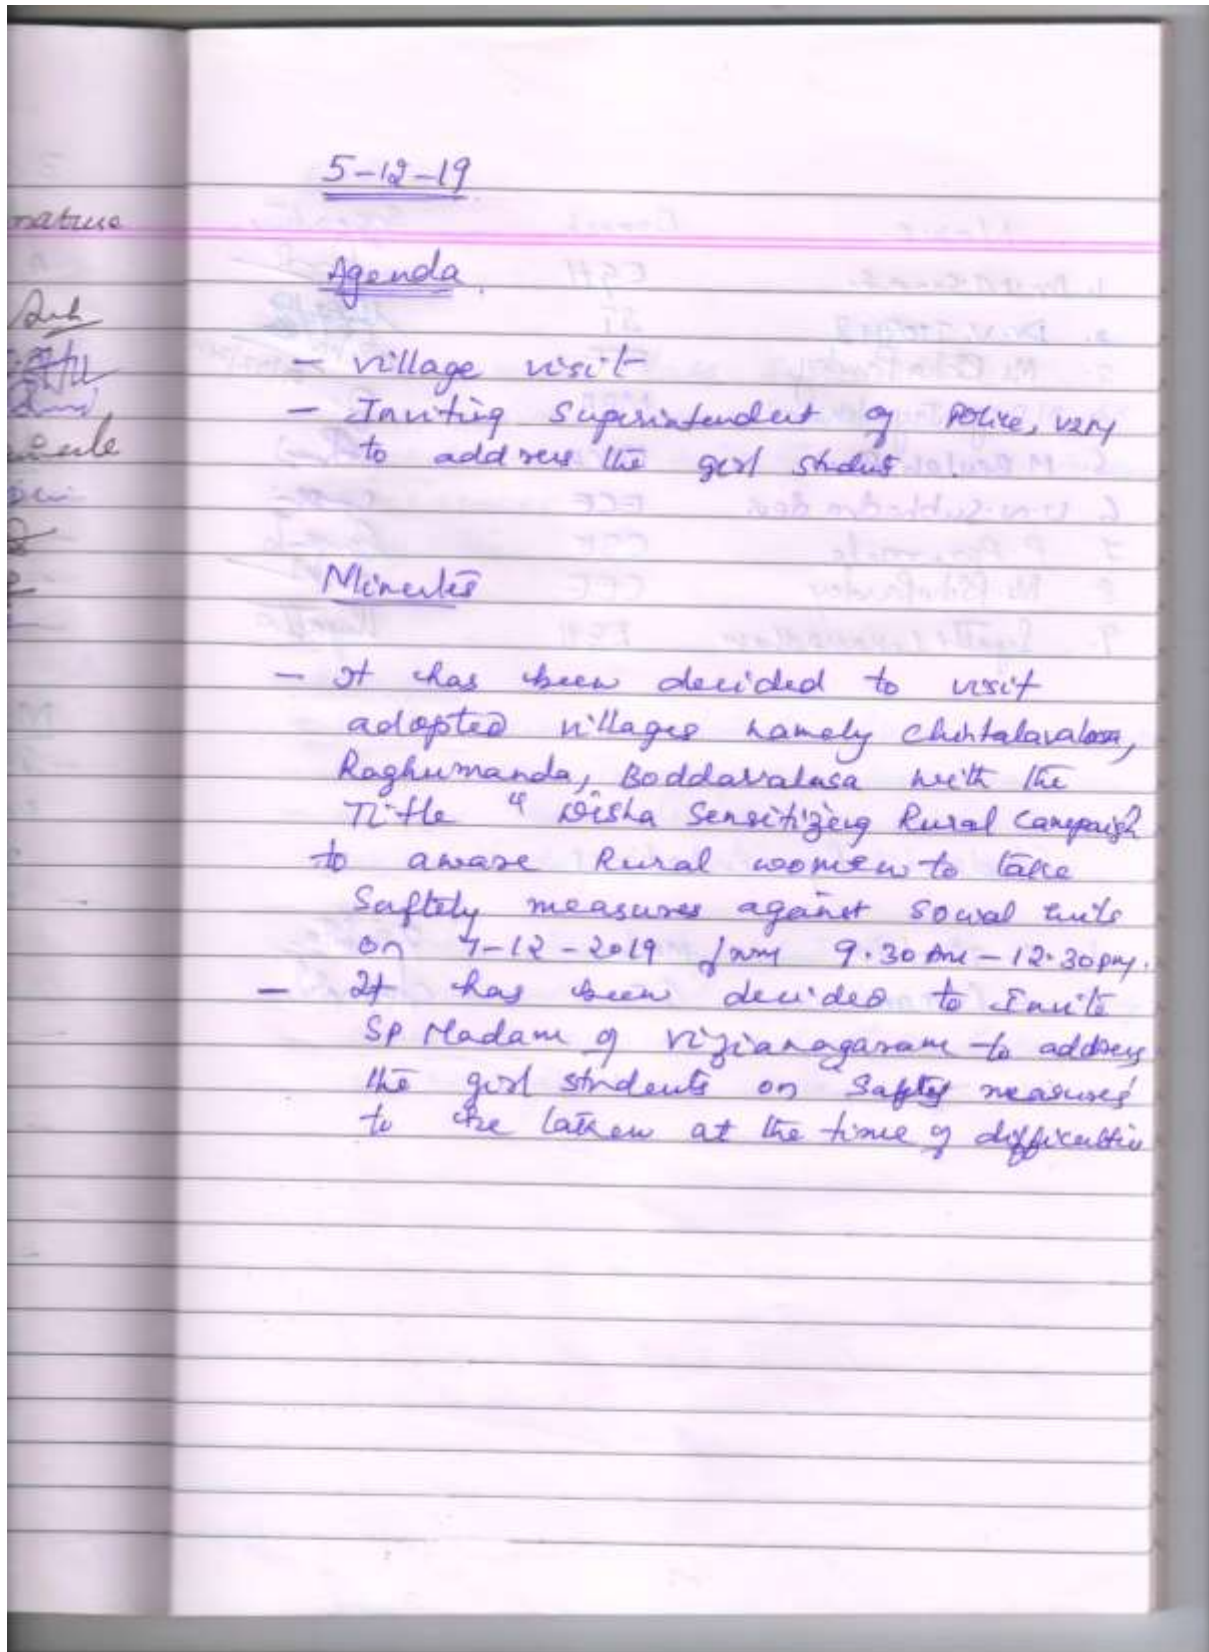 5-12-19
Agenda.
- village visit
- Inviting Superintendent of Police, VZM
to address the girl students.
Minutes
- It has been decided to visit
adopted villages namely Chintalavalasa,
Raghumanda, Boddavalasa with the
Title " Disha Sensitizing Rural Campaign"
to aware Rural women to take
Saftely measures against Social evils
on 7-12-2019 from 9.30 AM - 12.30 PM.
- It has been decided to Invite
SP Madam of Vizianagaram to address
the girl students on Safety measures
to be taken at the time of difficulties
nature